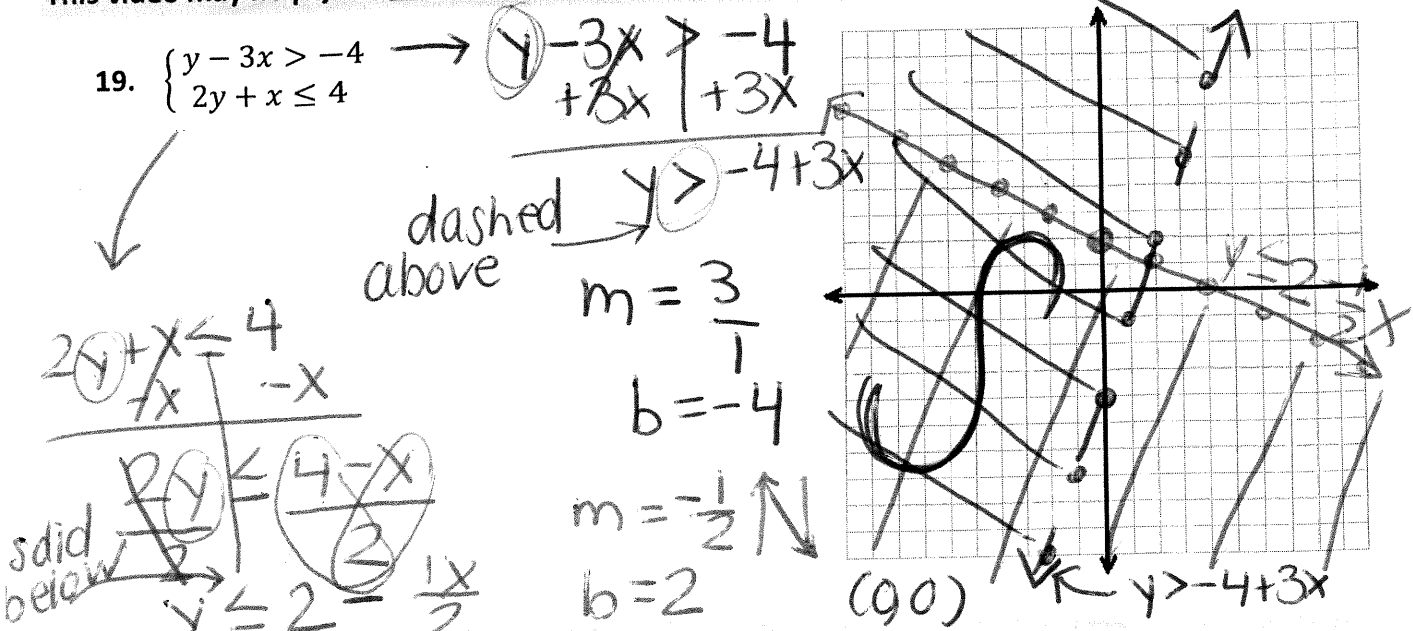 19. { y − 3x > −4
2y + x ≤ 4
y − 3x > −4
+3x +3x
y > −4+3x
dashed
above
m = 3/1
b = −4
2y + x ≤ 4
−x −x
2y/2 ≤ 4 − x/2
sdid
below
y ≤ 2 − 1x/2
m = −1/2
b = 2
S
y ≤ 2 − 1/2 x
(0,0)
y > −4+3x